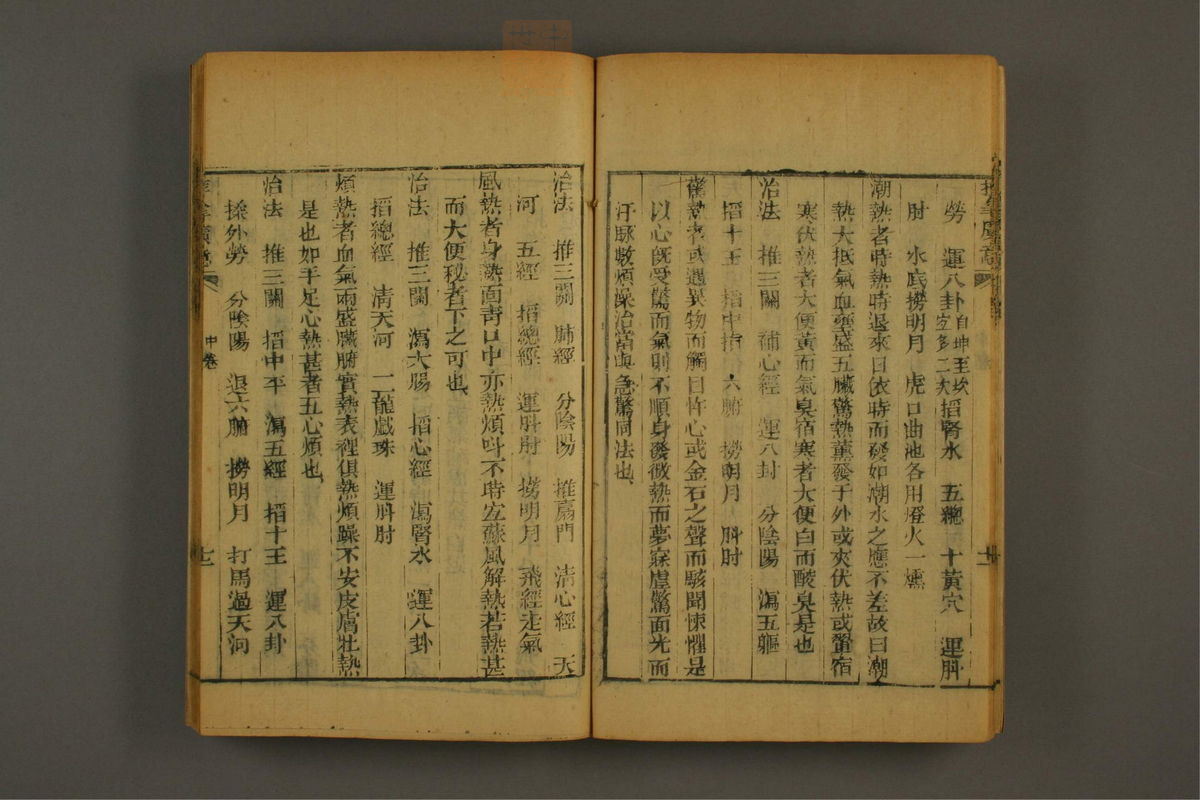 勞　運八卦自坤至坎宜多二次掐腎水　五總　十黃穴　運㪷
肘　水底撈明月　虎口曲池各用燈火一燋
潮熱者時熱時退來日依時而發如潮水之應不差故曰潮
熱大抵氣血壅盛五臟驚熱薰發于外或夾伏熱或宿
寒伏熱者大便黃而氣臭宿寒者大便白而酸臭是也
治法　推三關　補心經　運八卦　分陰陽　瀉五軀
掐十王　掐中指　六腑　撈明月　㪷肘
驚熱者或遇異物而觸目忤心或金石之聲而駭聞悚懼是
以心既受驚而氣則不順身發微熱而夢寐虛驚面光而
汗脉數煩燥治當與急驚同法也
治法　推三關　肺經　分陰陽　推扇門　清心經　天
河　五經　掐總經　運㪷肘　撈明月　飛經走氣
風熱者身熱面青口中亦熱煩叫不時宜蘇風解熱若熱甚
而大便秘者下之可也
治法　推三關　瀉大腸　掐心經　瀉腎水　運八卦
掐總經　清天河　二龍戲珠　運㪷肘
煩熱者血氣兩盛臟腑實熱表裡俱熱煩躁不安皮膚壯熱
是也如手足心熱甚者五心煩也
治法　推三關　掐中平　瀉五經　掐十王　運八卦
揉外勞　分陰陽　退六腑　撈明月　打馬過天河
中卷